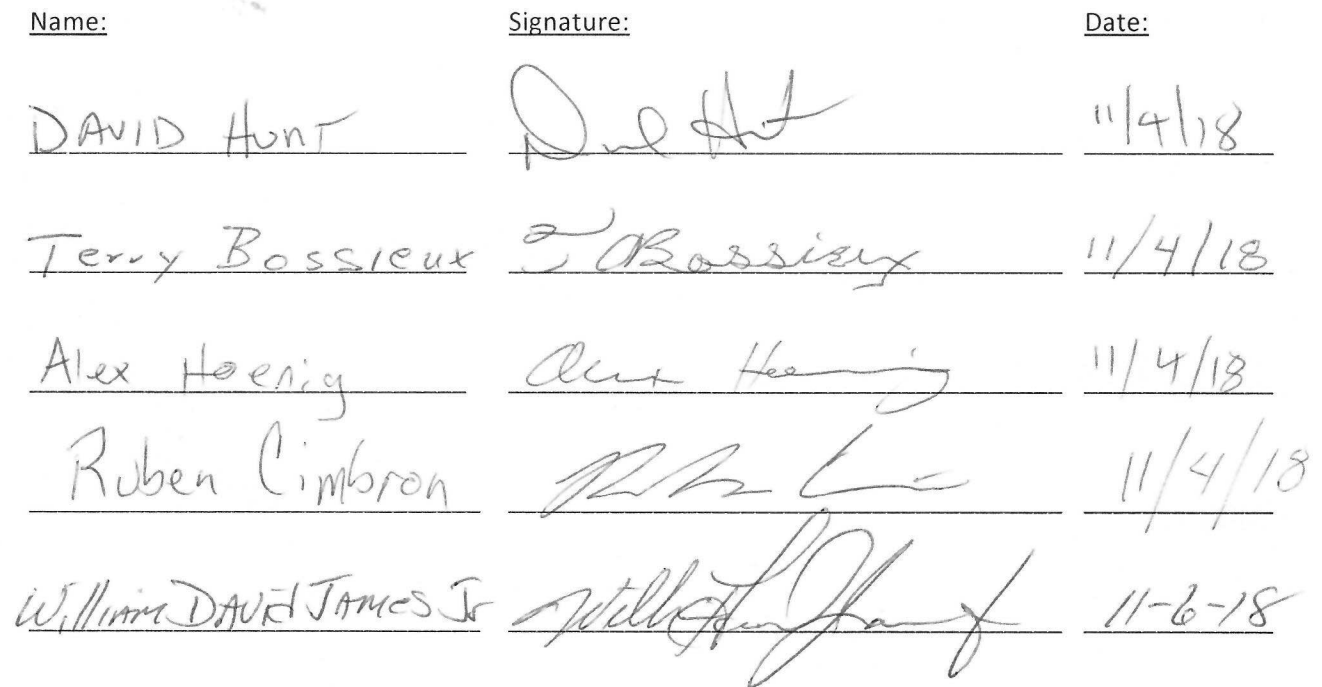 Name: Signature: Date:
DAVID HUNT David Hunt 11/4/18
Terry Bossieux T Bossieux 11/4/18
Alex Hoenig Alex Hoenig 11/4/18
Ruben Cimbron 11/4/18
William DAVID JAMES Jr 11-6-18